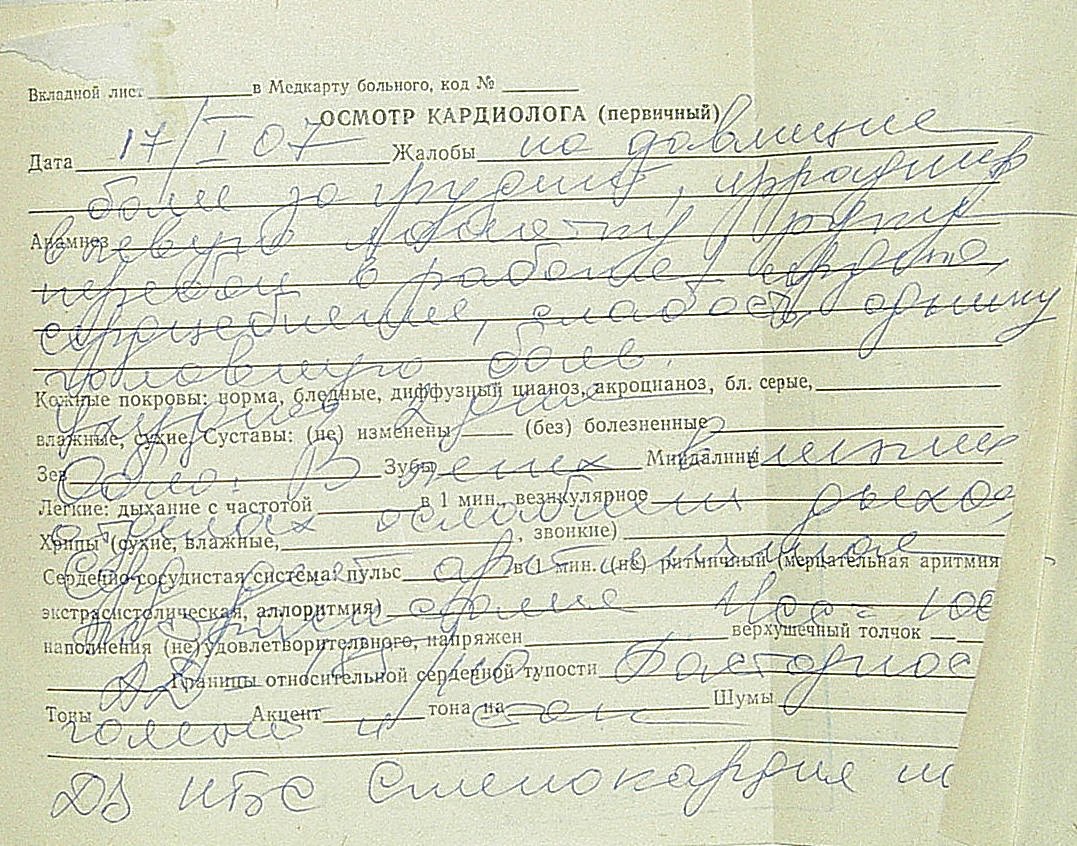 Вкладной лист в Медкарту больного, код №
ОСМОТР КАРДИОЛОГА (первичный)
Дата 17/I 07 Жалобы на давящие
боли за грудиной, иррадиир
Анамнез в левую лопатку,
перебои в работе сердца,
сердцебиение, слабость, одышку
головную боль.
Кожные покровы: норма, бледные, диффузный цианоз, акроцианоз, бл. серые,
Ухудшение 2 дня
влажные, сухие, Суставы: (не) изменены (без) болезненные
Зев Зубы Миндалины
Объ-но: В легких в нижних
Легкие: дыхание с частотой в 1 мин., везикулярное
отделах дыхо
Хрипы (сухие, влажные, , звонкие)
Сердечно-сосудистая система: пульс в 1 мин. (не) ритмичный (мерцательная аритмия
экстрасистолическая, аллоритмия)
Чсс = 100
наполнения (не)удовлетворительного, напряжен верхушечный толчок
АД
Границы относительной сердечной тупости
Тоны Акцент тона на Шумы
голеней и стоп
DS ИБС Стенокардия н